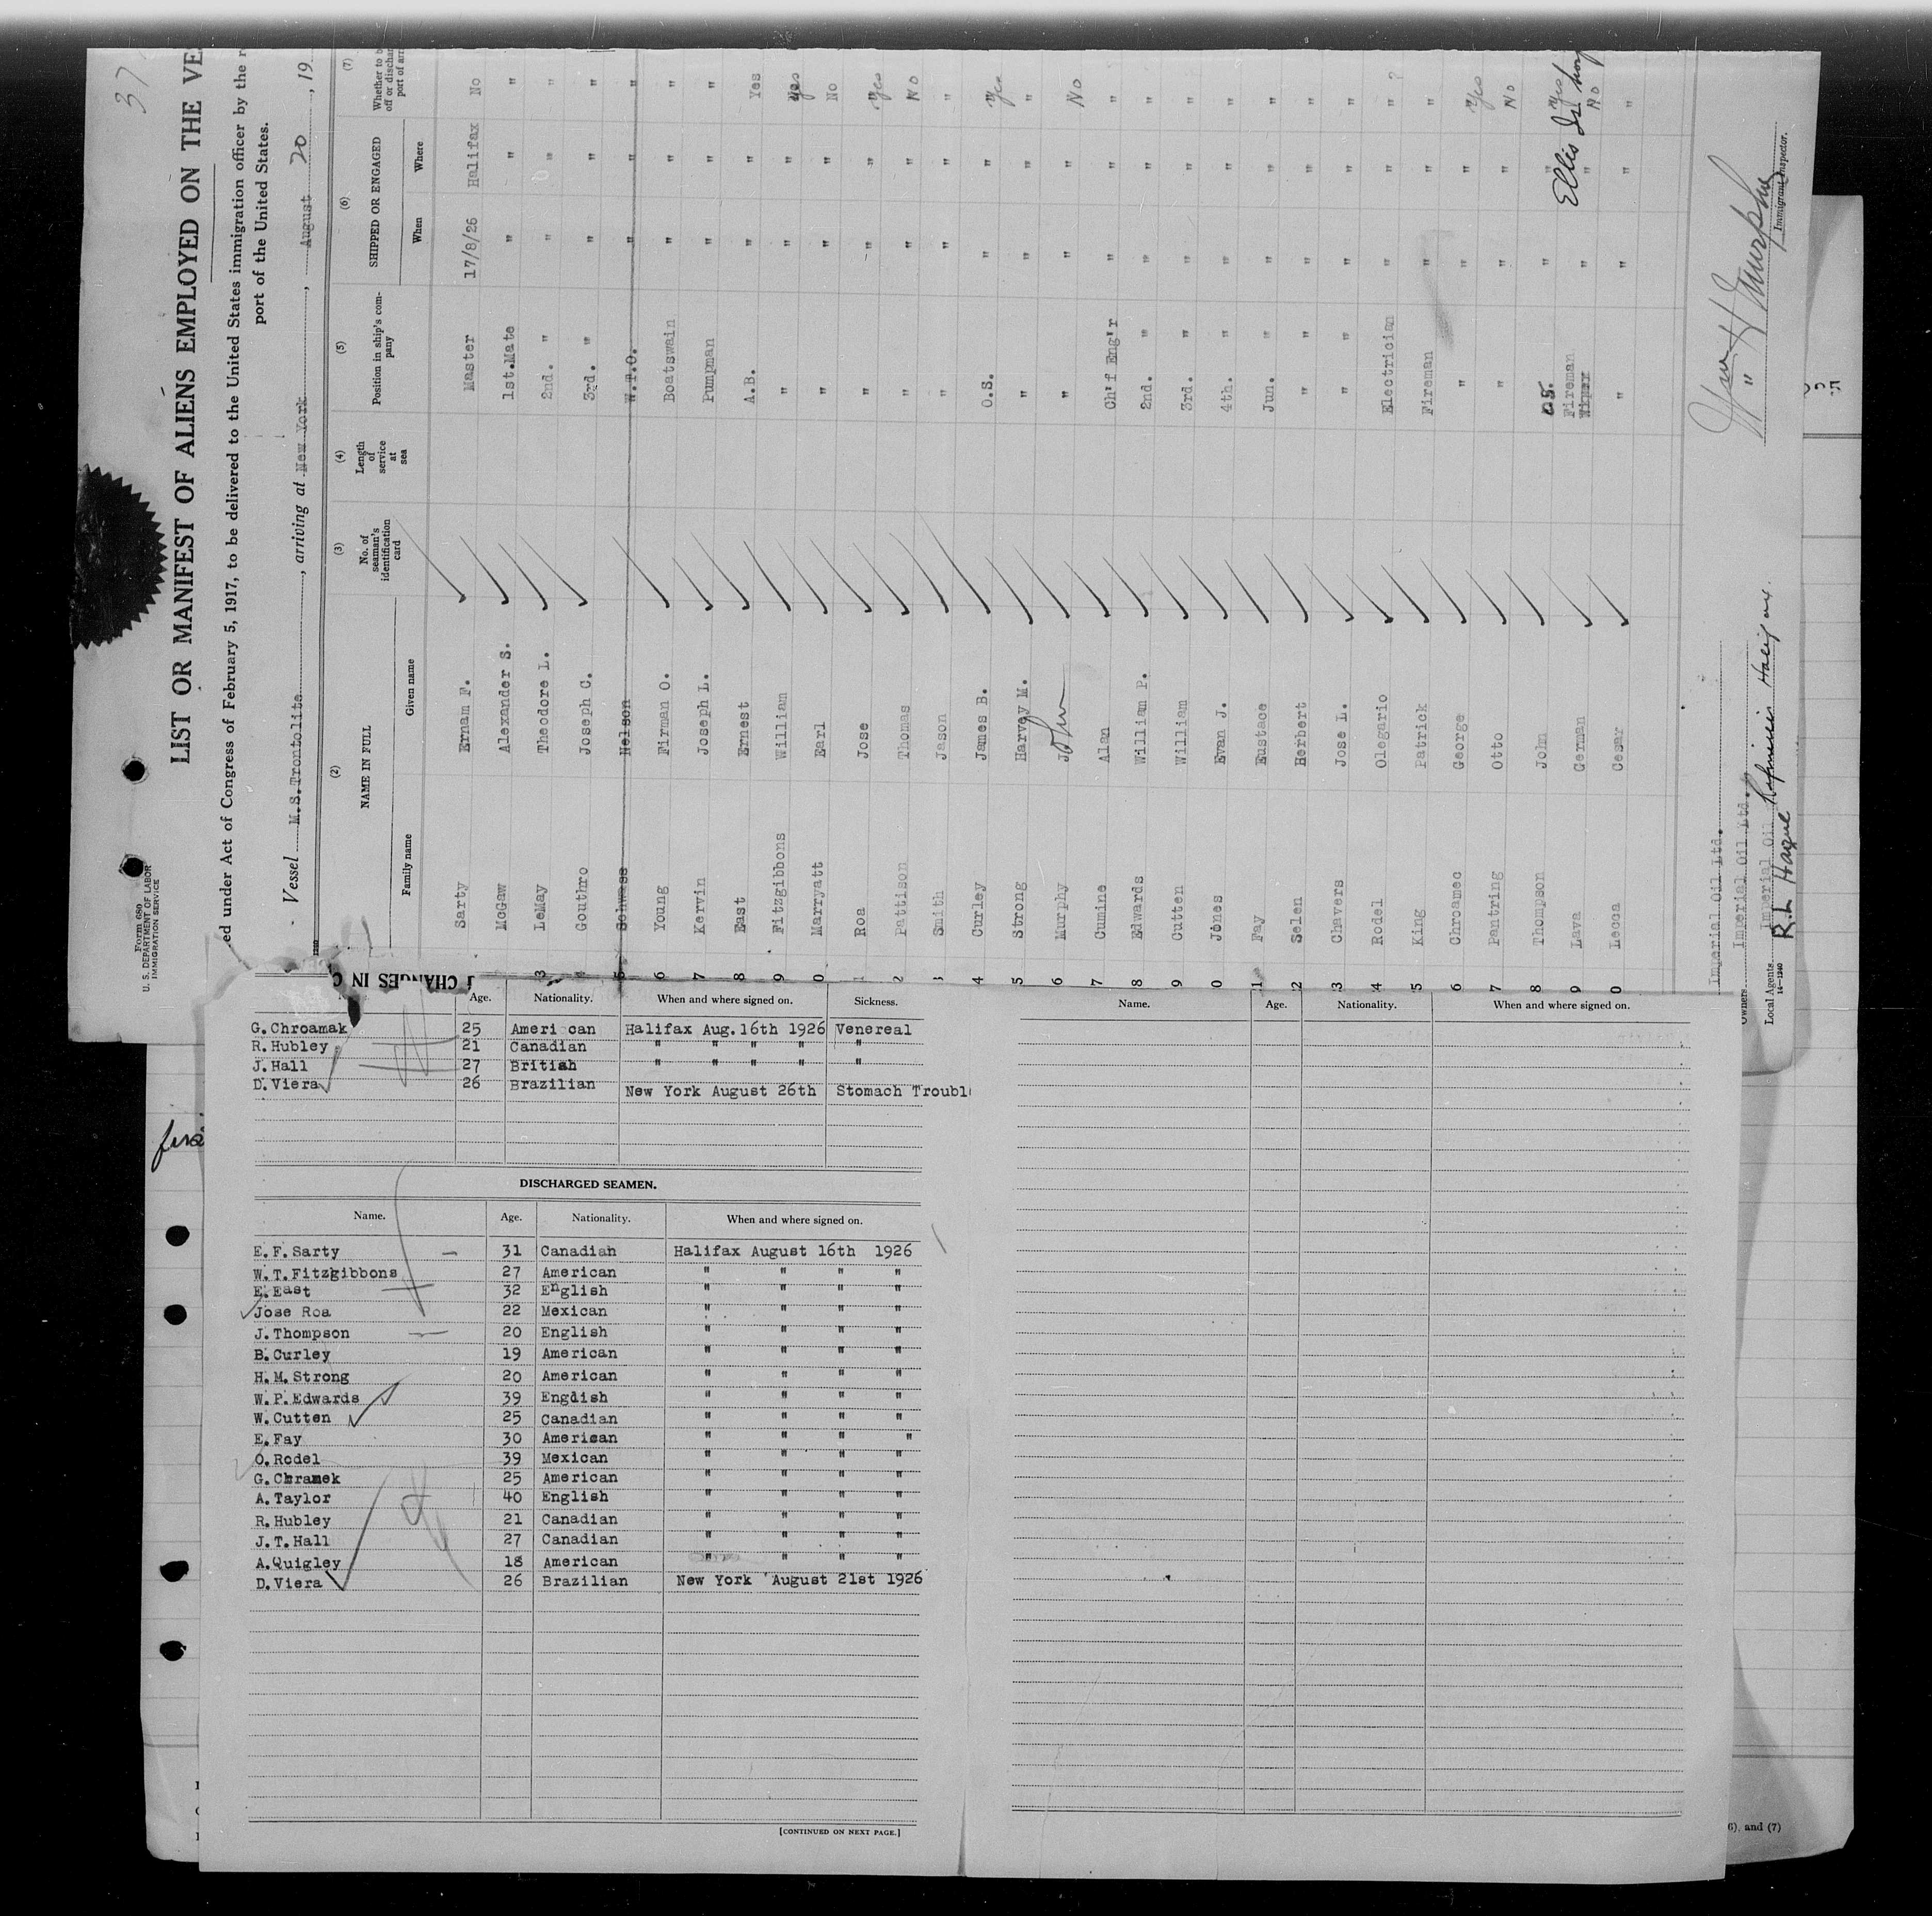 37
Form 680
U. S. DEPARTMENT OF LABOR
IMMIGRATION SERVICE
LIST OR MANIFEST OF ALIENS EMPLOYED ON THE VE
ed under Act of Congress of February 5, 1917, to be delivered to the United States immigration officer by the r
port of the United States.
Vessel M.S.Trontolite, arriving at New York, August 20, 19
(2) (3) (4) (5) (6) (7)
NAME IN FULL No. of seaman's identification card Length of service at sea Position in ship's company SHIPPED OR ENGAGED Whether to b off or dischar port of arr
Family name Given name When Where
Sarty Ernam F. Master 17/8/26 Halifax No
McGaw Alexander S. 1st.Mate " " "
3 LeMay Theodore L. 2nd. " " " "
4 Gouthro Joseph C. 3rd. " " " "
5 Schwass Nelson W.T.O. " " "
6 Young Firman O. Boatswain " " "
7 Kervin Joseph L. Pumpman " " "
8 East Ernest A.B. " " Yes
9 Fitzgibbons William " " " Yes
0 Marryatt Earl " " " No
1 Roa Jose " " " Yes
2 Pattison Thomas " " " No
3 Smith Jason " " " "
4 Curley James B. O.S. " " Yes
5 Strong Harvey M. " " " "
6 Murphy John " " " No
7 Cumine Alan Ch'f Eng'r " " "
8 Edwards William P. 2nd. " " " "
9 Cutten William 3rd. " " " "
0 Jones Evan J. 4th. " " " "
1 Fay Eustace Jun. " " " "
2 Selen Herbert " " " " "
3 Chavers Jose L. " " " " "
4 Rodel Olegario Electrician " " " ?
5 King Patrick Fireman " " "
6 Chroamec George " " " Yes
7 Pantring Otto " " " No
8 Thompson John O.S. " " Yes
9 Lava German Fireman Wiper " " No
0 Lecca Cesar " " " "
Ellis Isl
Imperial Oil Ltd.
Owners Imperial Oil Ltd.
Local Agents Imperial Oil Refineries Halifax
R.L. Hague
14—1240
Wm H Murphy
"
Immigrant Inspector.
CHANGES IN C
Age. Nationality. When and where signed on. Sickness.
G.Chroamak 25 Ameri can Halifax Aug.16th 1926 Venereal
R.Hubley 21 Canadian " " " " "
J.Hall 27 British " " " " "
D.Viera 26 Brazilian New York August 26th Stomach Troubl
DISCHARGED SEAMEN.
Name. Age. Nationality. When and where signed on.
E.F.Sarty 31 Canadian Halifax August 16th 1926
W.T.Fitzgibbons 27 American " " " "
E.East 32 English " " " "
Jose Roa 22 Mexican " " " "
J.Thompson 20 English " " " "
B.Curley 19 American " " " "
H.M.Strong 20 American " " " "
W.P.Edwards 39 English " " " "
W.Cutten 25 Canadian " " " "
E.Fay 30 American " " " "
O.Rodel 39 Mexican " " " "
G.Chramek 25 American " " " "
A.Taylor 40 English " " " "
R.Hubley 21 Canadian " " " "
J.T.Hall 27 Canadian " " " "
A.Quigley 18 American " " " "
D.Viera 26 Brazilian New York August 21st 1926
[CONTINUED ON NEXT PAGE.]
Name. Age. Nationality. When and where signed on.
6), and (7)